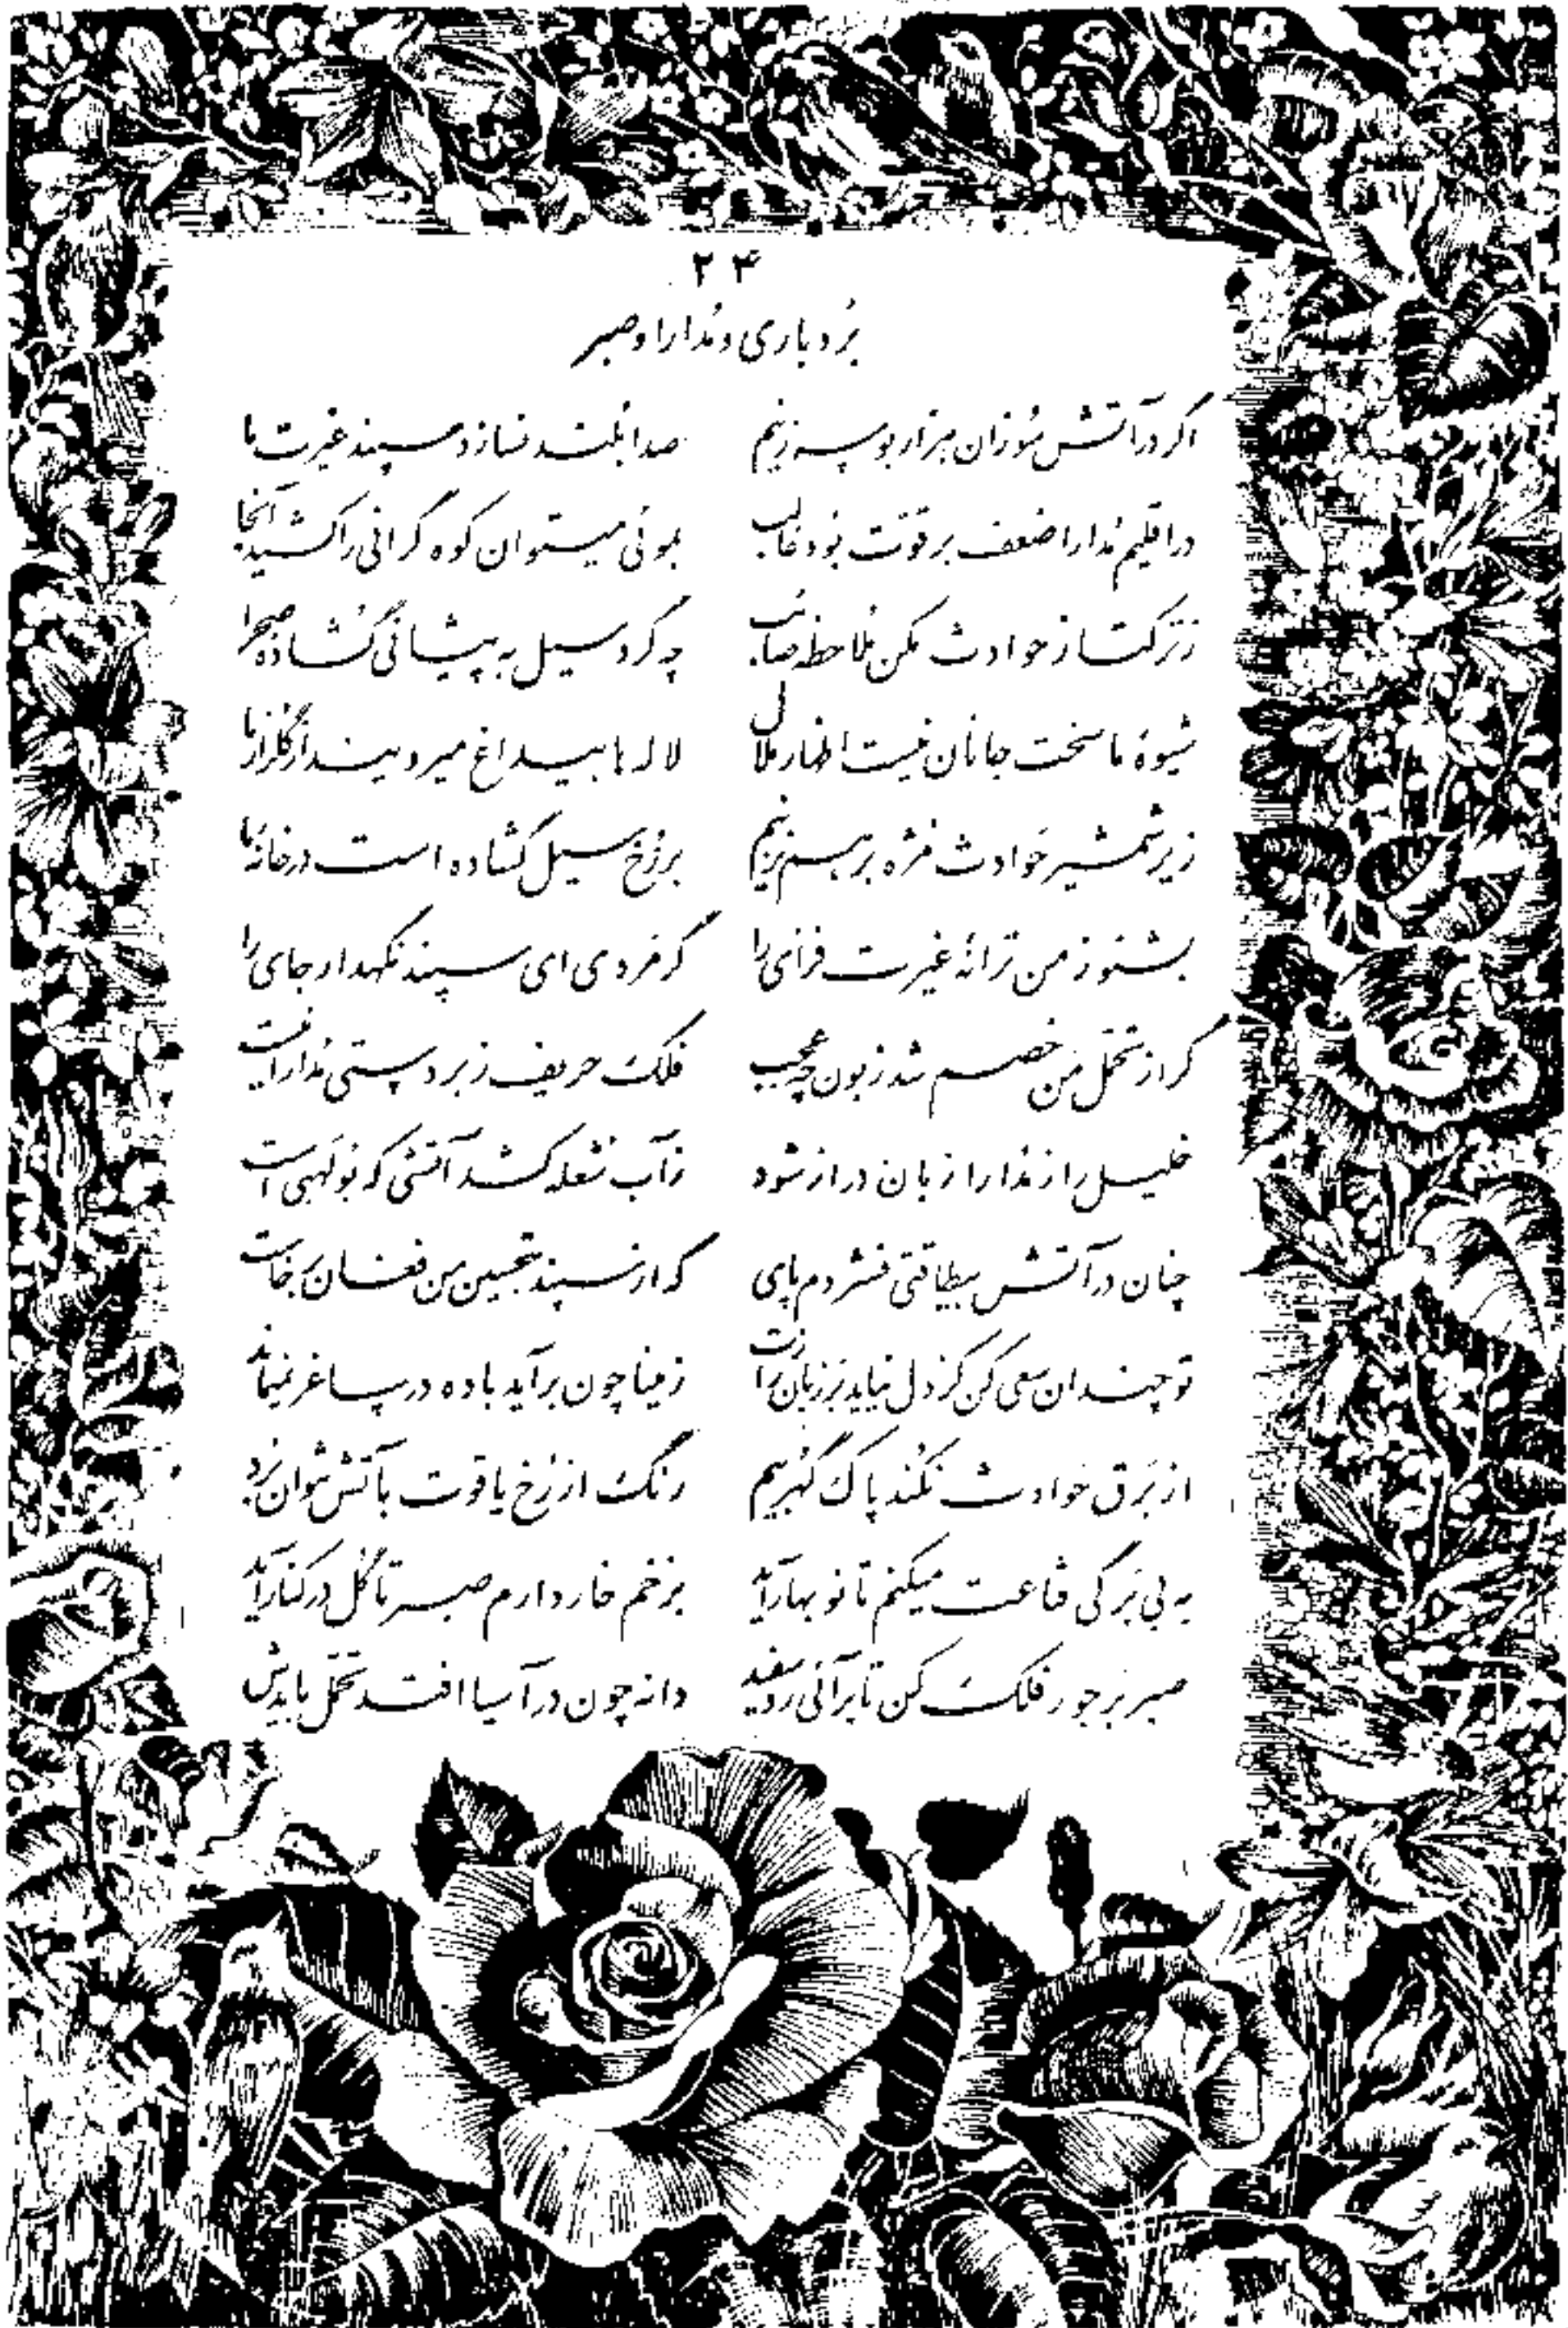 ۲۴
بُردباری و مُدارا و صبر
اگر در آتش سُوزان هزار بوسه زنیم    صدا بُلند نسازد سپند غیرت ما
در اقلیم مُدارا ضعف بر قوّت بُود غالب    بموئی میتوان کوه گرانی را کشید آنجا
ز ترکتاز حوادث مکن مُلاحظه صائب    چه کرد سیل به پیشانی گشاده صحرا
شیوهٔ ما سخت جانان نیست اظهار ملال    لاله ها بیداغ میرویند از گلزار ما
زیر شمشیر حَوادث مژه برهم نزنیم    بر رُخ سیل گشاده است در خانهٔ ما
بشنو ز من ترانهٔ غیرت فزای را    گر مَردی ای سپند نگهدار جای را
گر از تحمّل مَن خصم شد زبون چه عجب    فلک حریف زبردستی مُدارا نیست
خلیل را ز مُدارا زبان دراز شود    ز آب شعله کشد آتشی که بُولهبی است
چنان در آتش بیطاقتی فشردم پای    که از سپند بتحسین من فغان برخاست
تو چندان سعی کن کز دل نیاید بَر زبان رازت    ز مینا چون برآید باده در ساغر نمیماند
از بَرق حَوادث نکُند پاک گهر بیم    رنگ از رُخ یاقوت بآتش نتوان بُرد
به بی بَرگی قناعت میکنم تا نوبهار آید    بزخم خار دارم صبر تا گُل در کنار آید
صبر بَر جور فلک کن تا برآئی رو سفید    دانه چون در آسیا افتد تحمّل بایدش